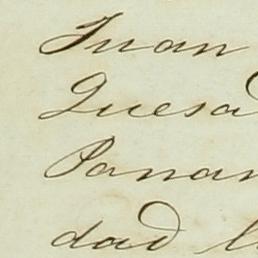 Juan
Quesa
Panam
dad l